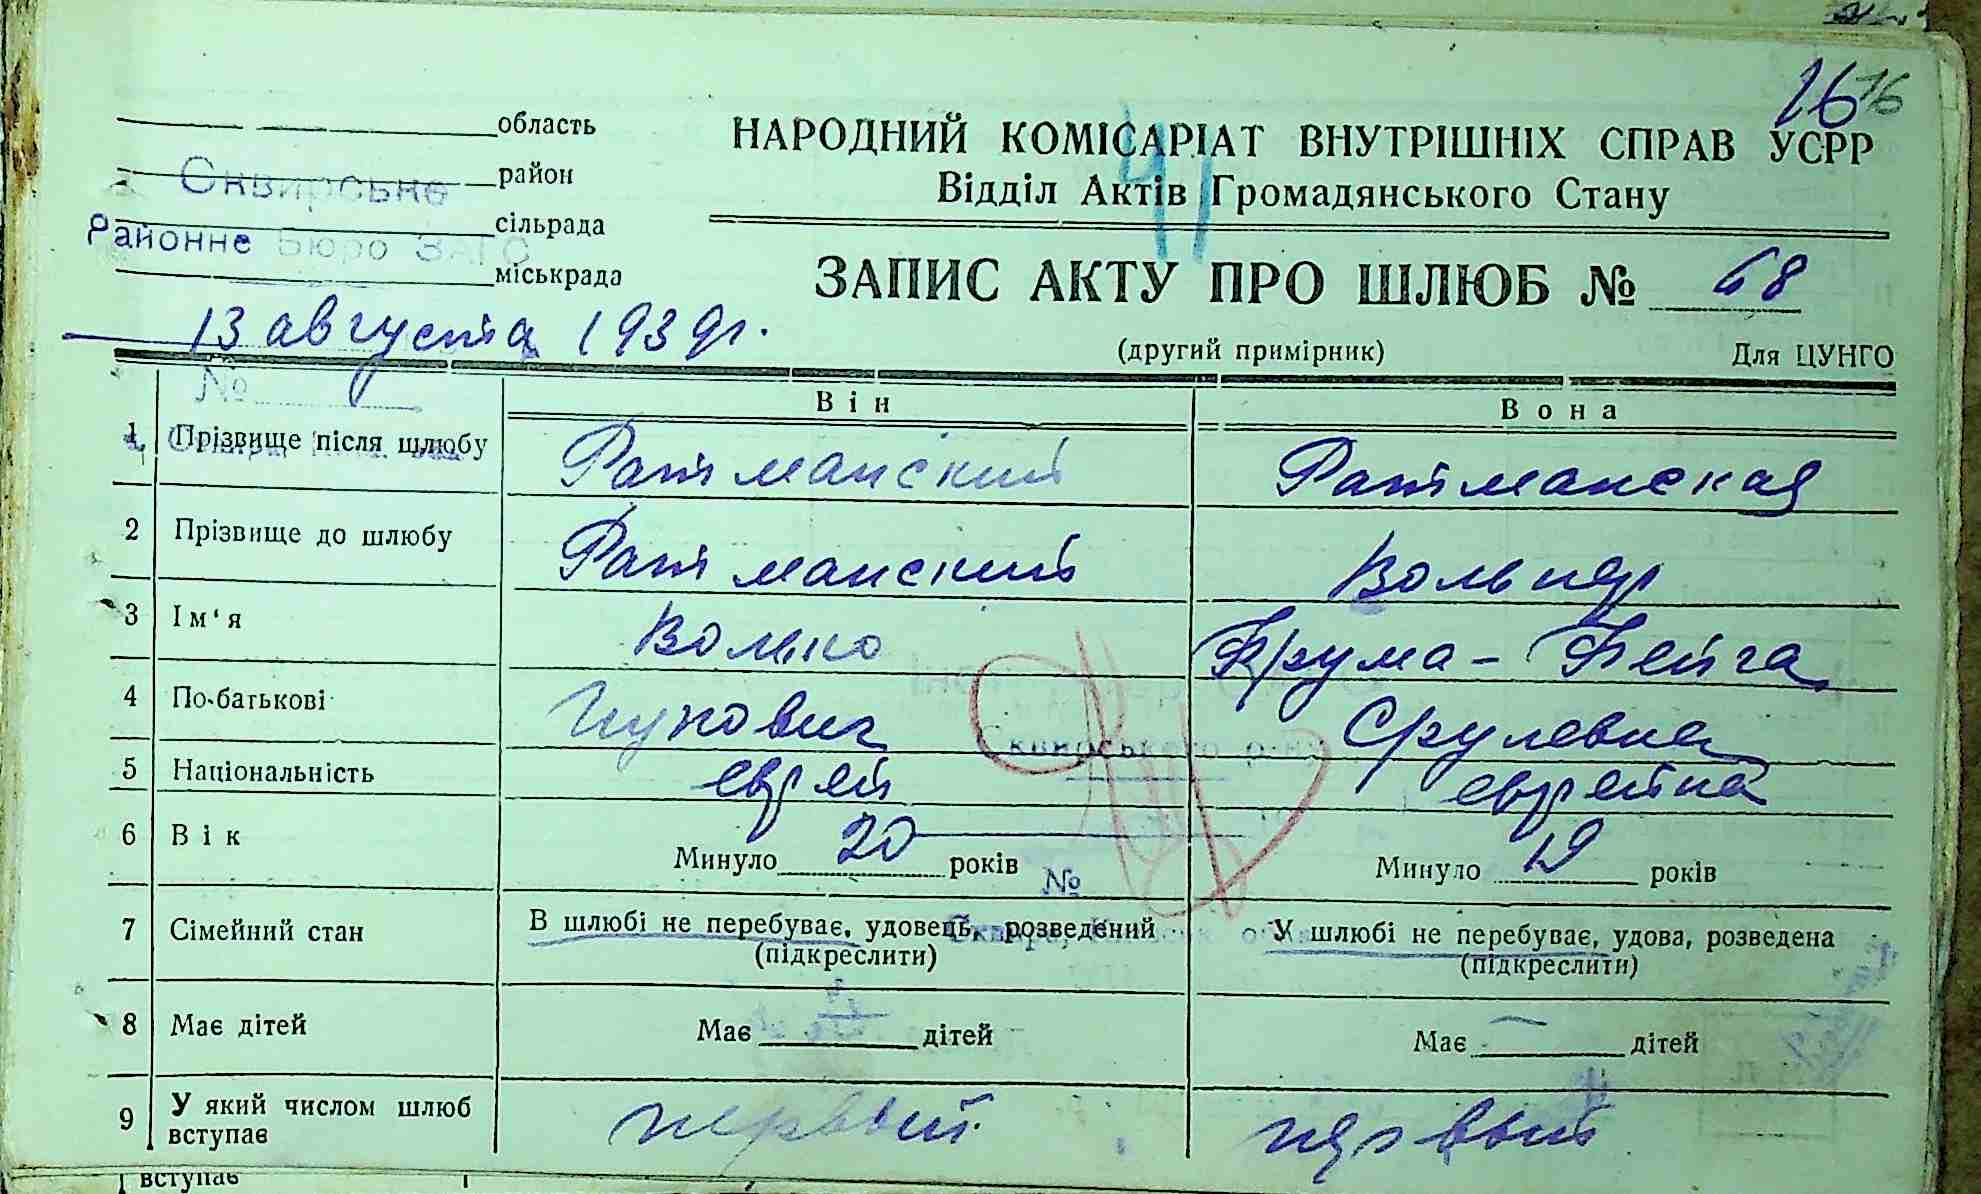 16 16
область
район
сільрада
міськрада
Сквирське
Районне Бюро ЗАГС
НАРОДНИЙ КОМІСАРІАТ ВНУТРІШНІХ СПРАВ УСРР
Відділ Актів Громадянського Стану
41
ЗАПИС АКТУ ПРО ШЛЮБ № 68
13 августа 1939г.
(другий примірник) Для ЦУНГО
№
Він Вона
1 Прізвище після шлюбу Ратманский Ратманская
2 Прізвище до шлюбу Ратманский Вольпер
3 Ім'я Волько Фрума-Фейга
4 По-батькові Ицкович Срулевна
5 Національність еврей еврейка
6 Вік Минуло 20 років Минуло 19 років
Сквирського р-ну
№
7 Сімейний стан В шлюбі не перебуває, удовець, розведений У шлюбі не перебуває, удова, розведена
(підкреслити) (підкреслити)
8 Має дітей Має дітей Має — дітей
9 У який числом шлюб первый первый
вступає
вступає